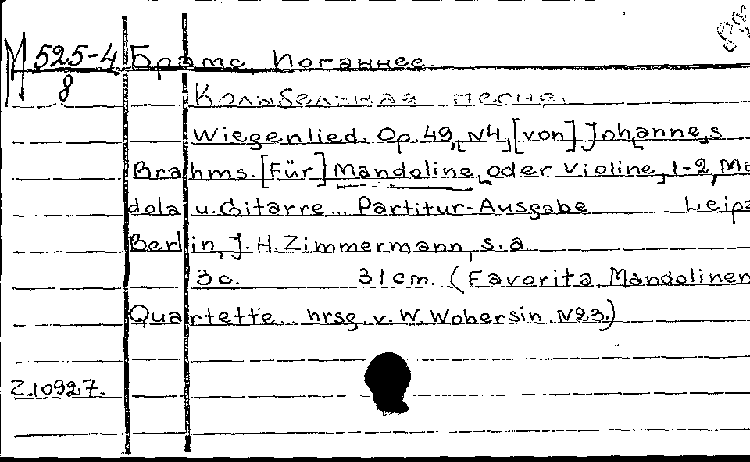 М 525-4
8
Брамс, Иоганнес.
Колыбельная песня.
Wiegenlied. Op. 49, N4, [von] Johannes
Brahms. [Für] Mandoline, oder Violine, 1-2, Ma
dola u. Gitarre... Partitur-Ausgabe Leipz
Berlin, J. H. Zimmermann, s.a
3 c. 31 cm. (Favorita. Mandolinen
Quartette... hrsg. v. W. Wobersin. N23.)
Z.10927.